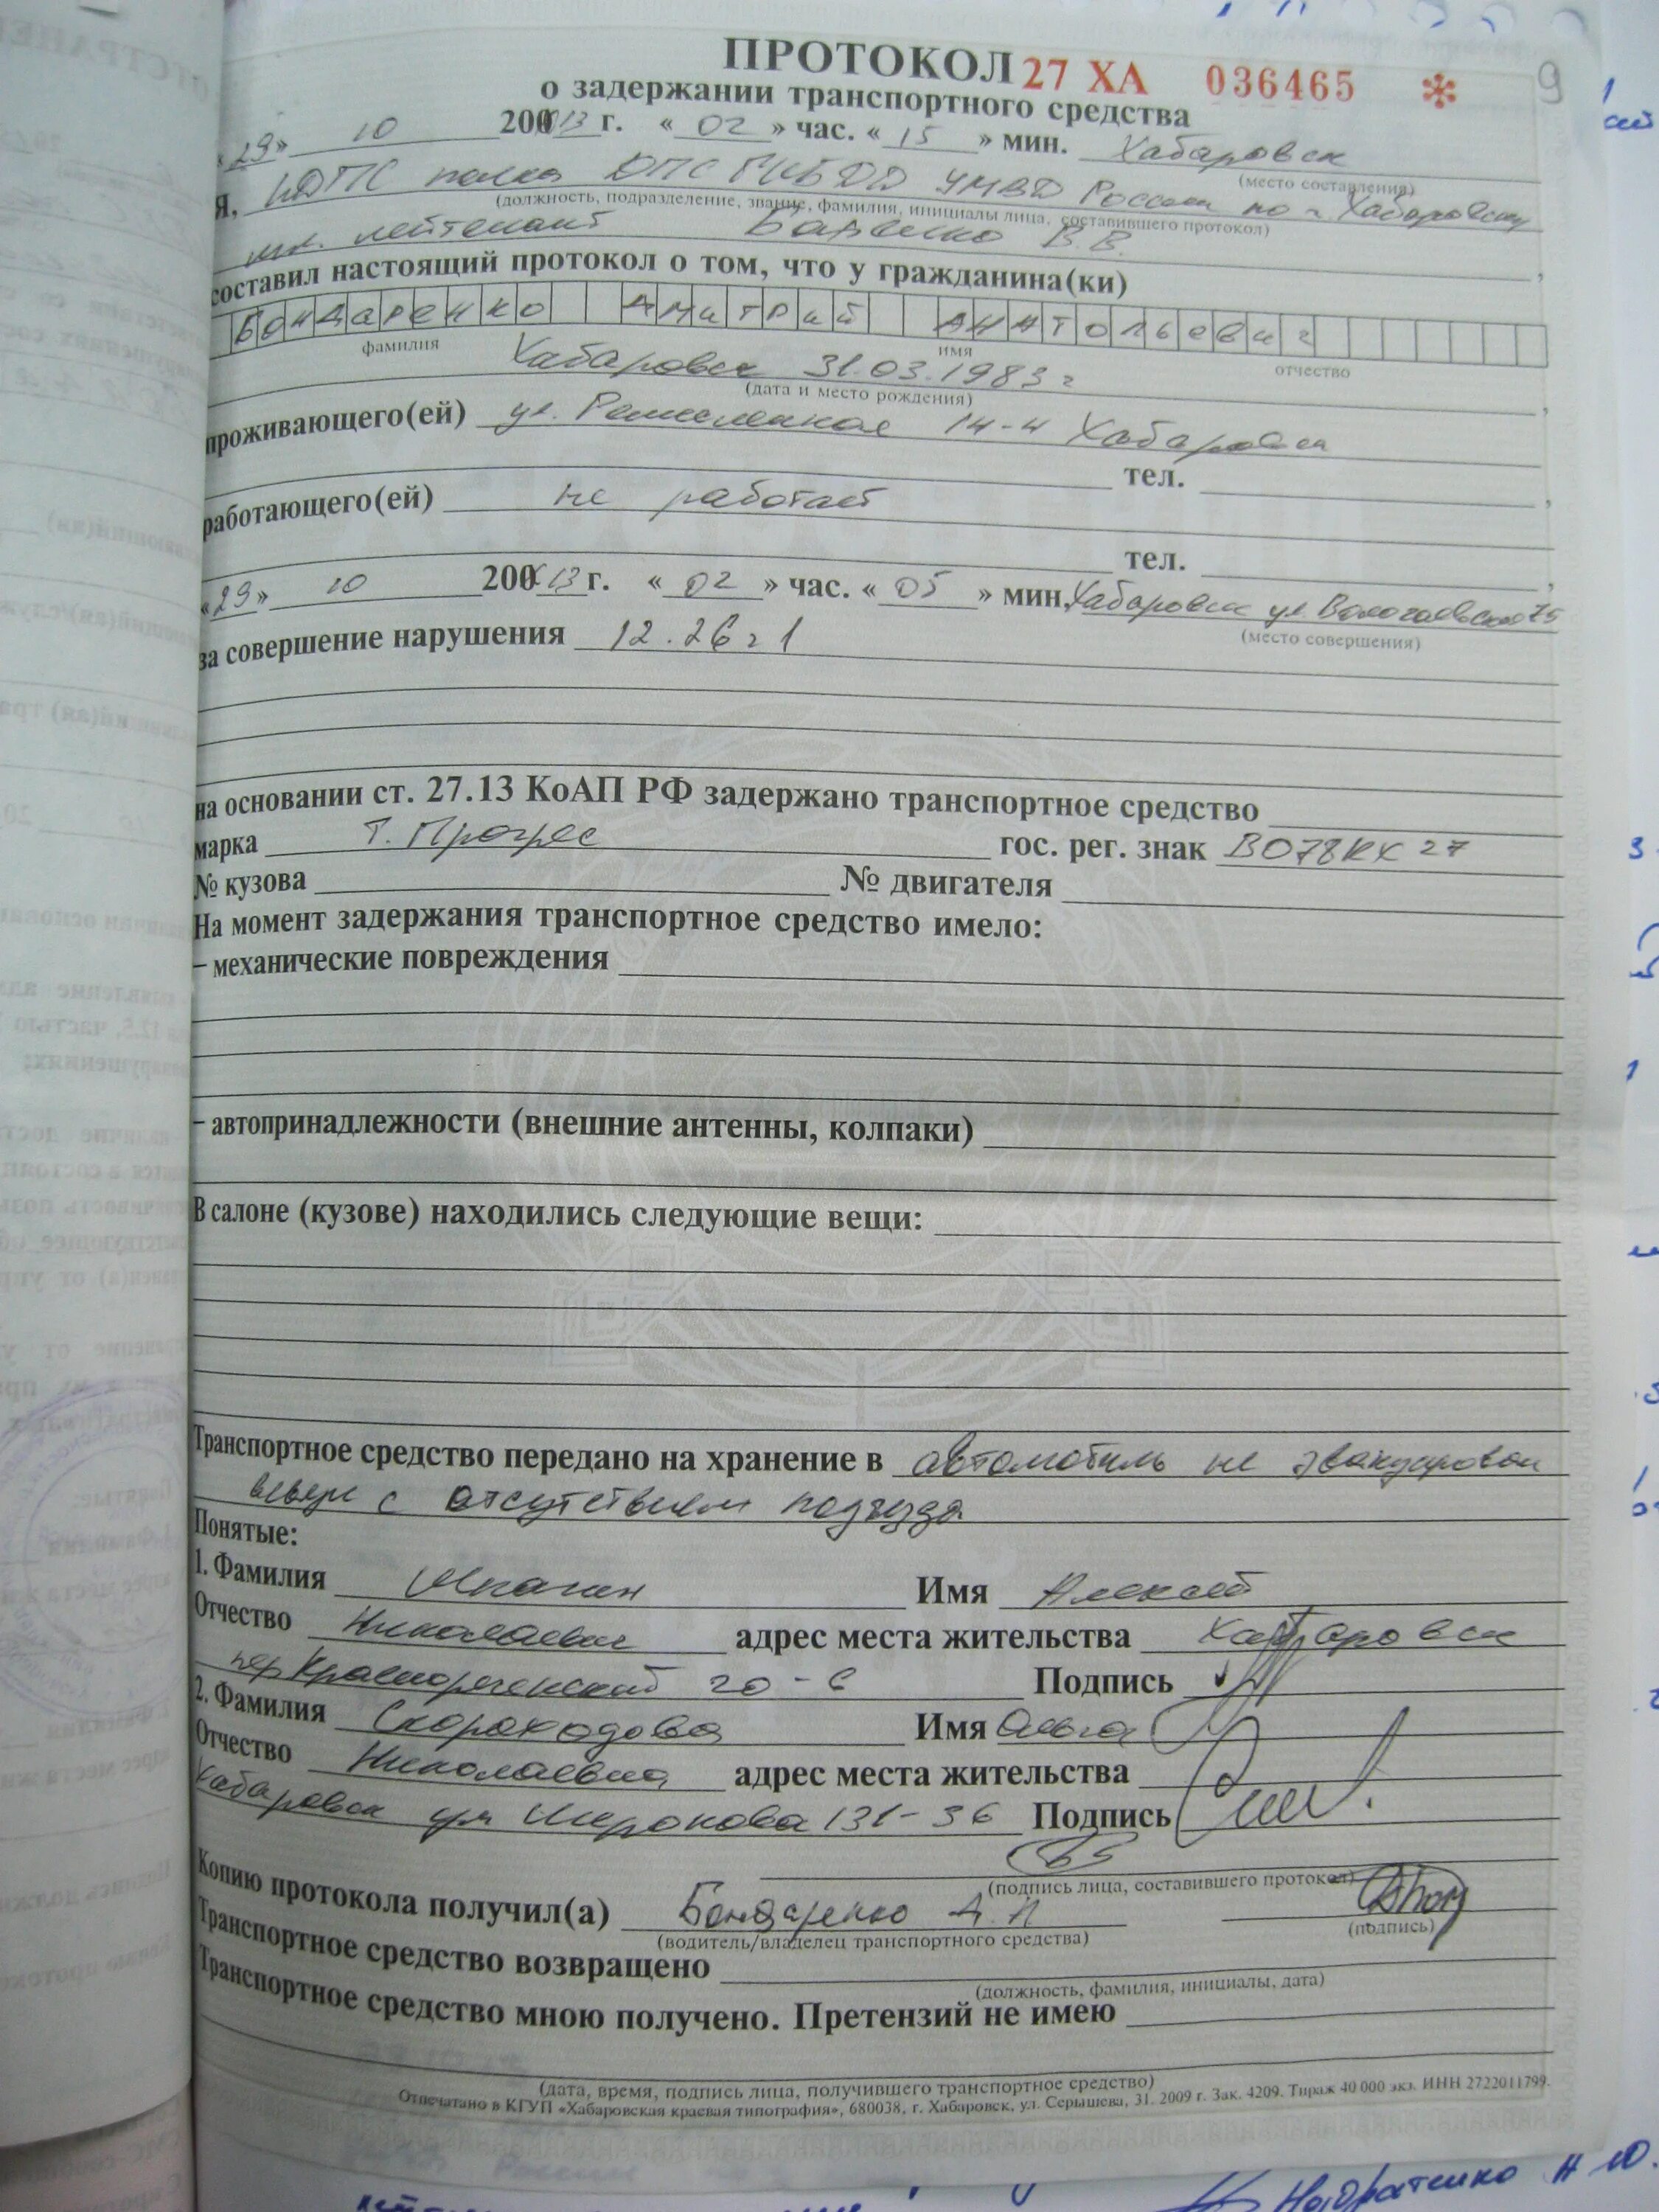 ПРОТОКОЛ 27 ХА 036465 *
9
о задержании транспортного средства
«29» 10 200 13 г. «02» час. «15» мин. Хабаровск
(место составления)
Я, ИДПС полка ДПС ГИБДД УМВД России по г. Хабаровску
(должность, подразделение, звание, фамилия, инициалы лица, составившего протокол)
мл. лейтенант В.В.
составил настоящий протокол о том, что у гражданина(ки)
Бондаренко Дмитрий Анатольевич
фамилия имя отчество
Хабаровск 31.03.1983 г
(дата и место рождения)
проживающего(ей) ул. 14-4 Хабаровск
тел.
работающего(ей) не работает
тел.
«29» 10 200 13 г. «02» час. «05» мин. Хабаровск ул. Волочаевская 75
(место совершения)
за совершение нарушения 12.26 ч 1
на основании ст. 27.13 КоАП РФ задержано транспортное средство
марка Т. Прогрес гос. рег. знак В078КХ 27
№ кузова № двигателя
На момент задержания транспортное средство имело:
– механические повреждения
– автопринадлежности (внешние антенны, колпаки)
В салоне (кузове) находились следующие вещи:
Транспортное средство передано на хранение в автомобиль не эвакуирован
с отсутствием подъезда
Понятые:
1. Фамилия Имя Алексей
Отчество Николаевич адрес места жительства Хабаровск
пер Краснореченский 20-6 Подпись
2. Фамилия Скороходова Имя Ольга
Отчество Николаевна адрес места жительства
Хабаровск ул 131-36 Подпись
(подпись лица, составившего протокол)
Копию протокола получил(а) Бондаренко Д.А
(водитель/владелец транспортного средства) (подпись)
Транспортное средство возвращено
(должность, фамилия, инициалы, дата)
Транспортное средство мною получено. Претензий не имею
(дата, время, подпись лица, получившего транспортное средство)
Отпечатано в КГУП «Хабаровская краевая типография», 680038, г. Хабаровск, ул. Серышева, 31. 2009 г. Зак. 4209. Тираж 40 000 экз. ИНН 2722011799.